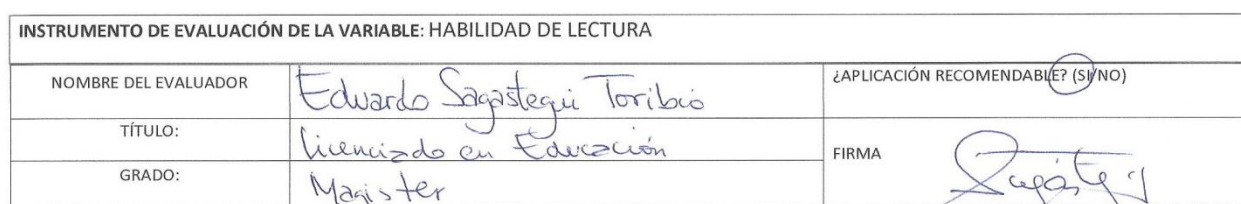 INSTRUMENTO DE EVALUACIÓN DE LA VARIABLE: HABILIDAD DE LECTURA
NOMBRE DEL EVALUADOR
Eduardo Sagastegui Toribio
¿APLICACIÓN RECOMENDABLE? (SI/NO)
TÍTULO:
Licenciado en Educación
GRADO:
Magister
FIRMA
Sagástegui